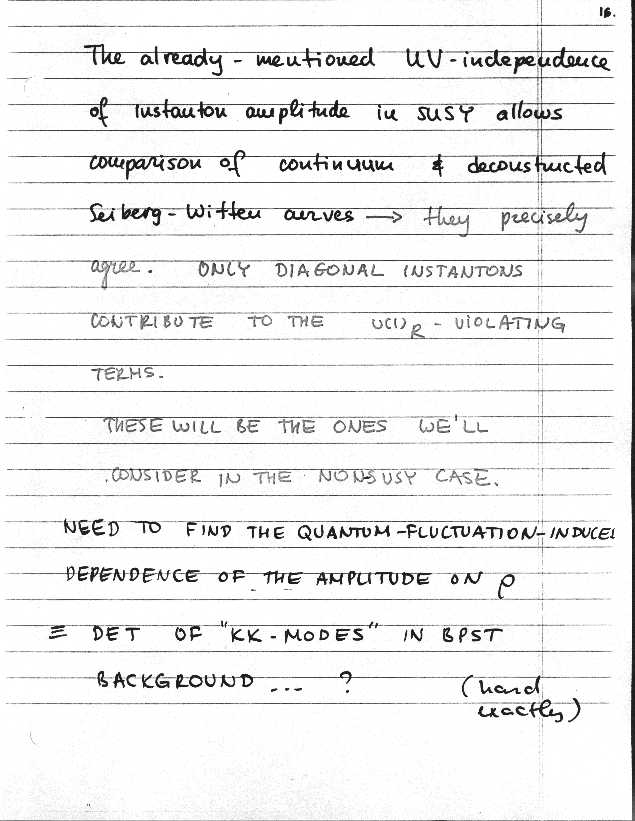 16.
The already-mentioned UV-independence
of instanton amplitude in SUSY allows
comparison of continuum & deconstructed
Seiberg-Witten curves → they precisely
agree. ONLY DIAGONAL INSTANTONS
CONTRIBUTE TO THE U(1)_R - VIOLATING
TERMS.
THESE WILL BE THE ONES WE'LL
CONSIDER IN THE NONSUSY CASE.
NEED TO FIND THE QUANTUM-FLUCTUATION-INDUCED
DEPENDENCE OF THE AMPLITUDE ON ρ
≡ DET OF "KK-MODES" IN BPST
BACKGROUND ... ? (hard
exactly)